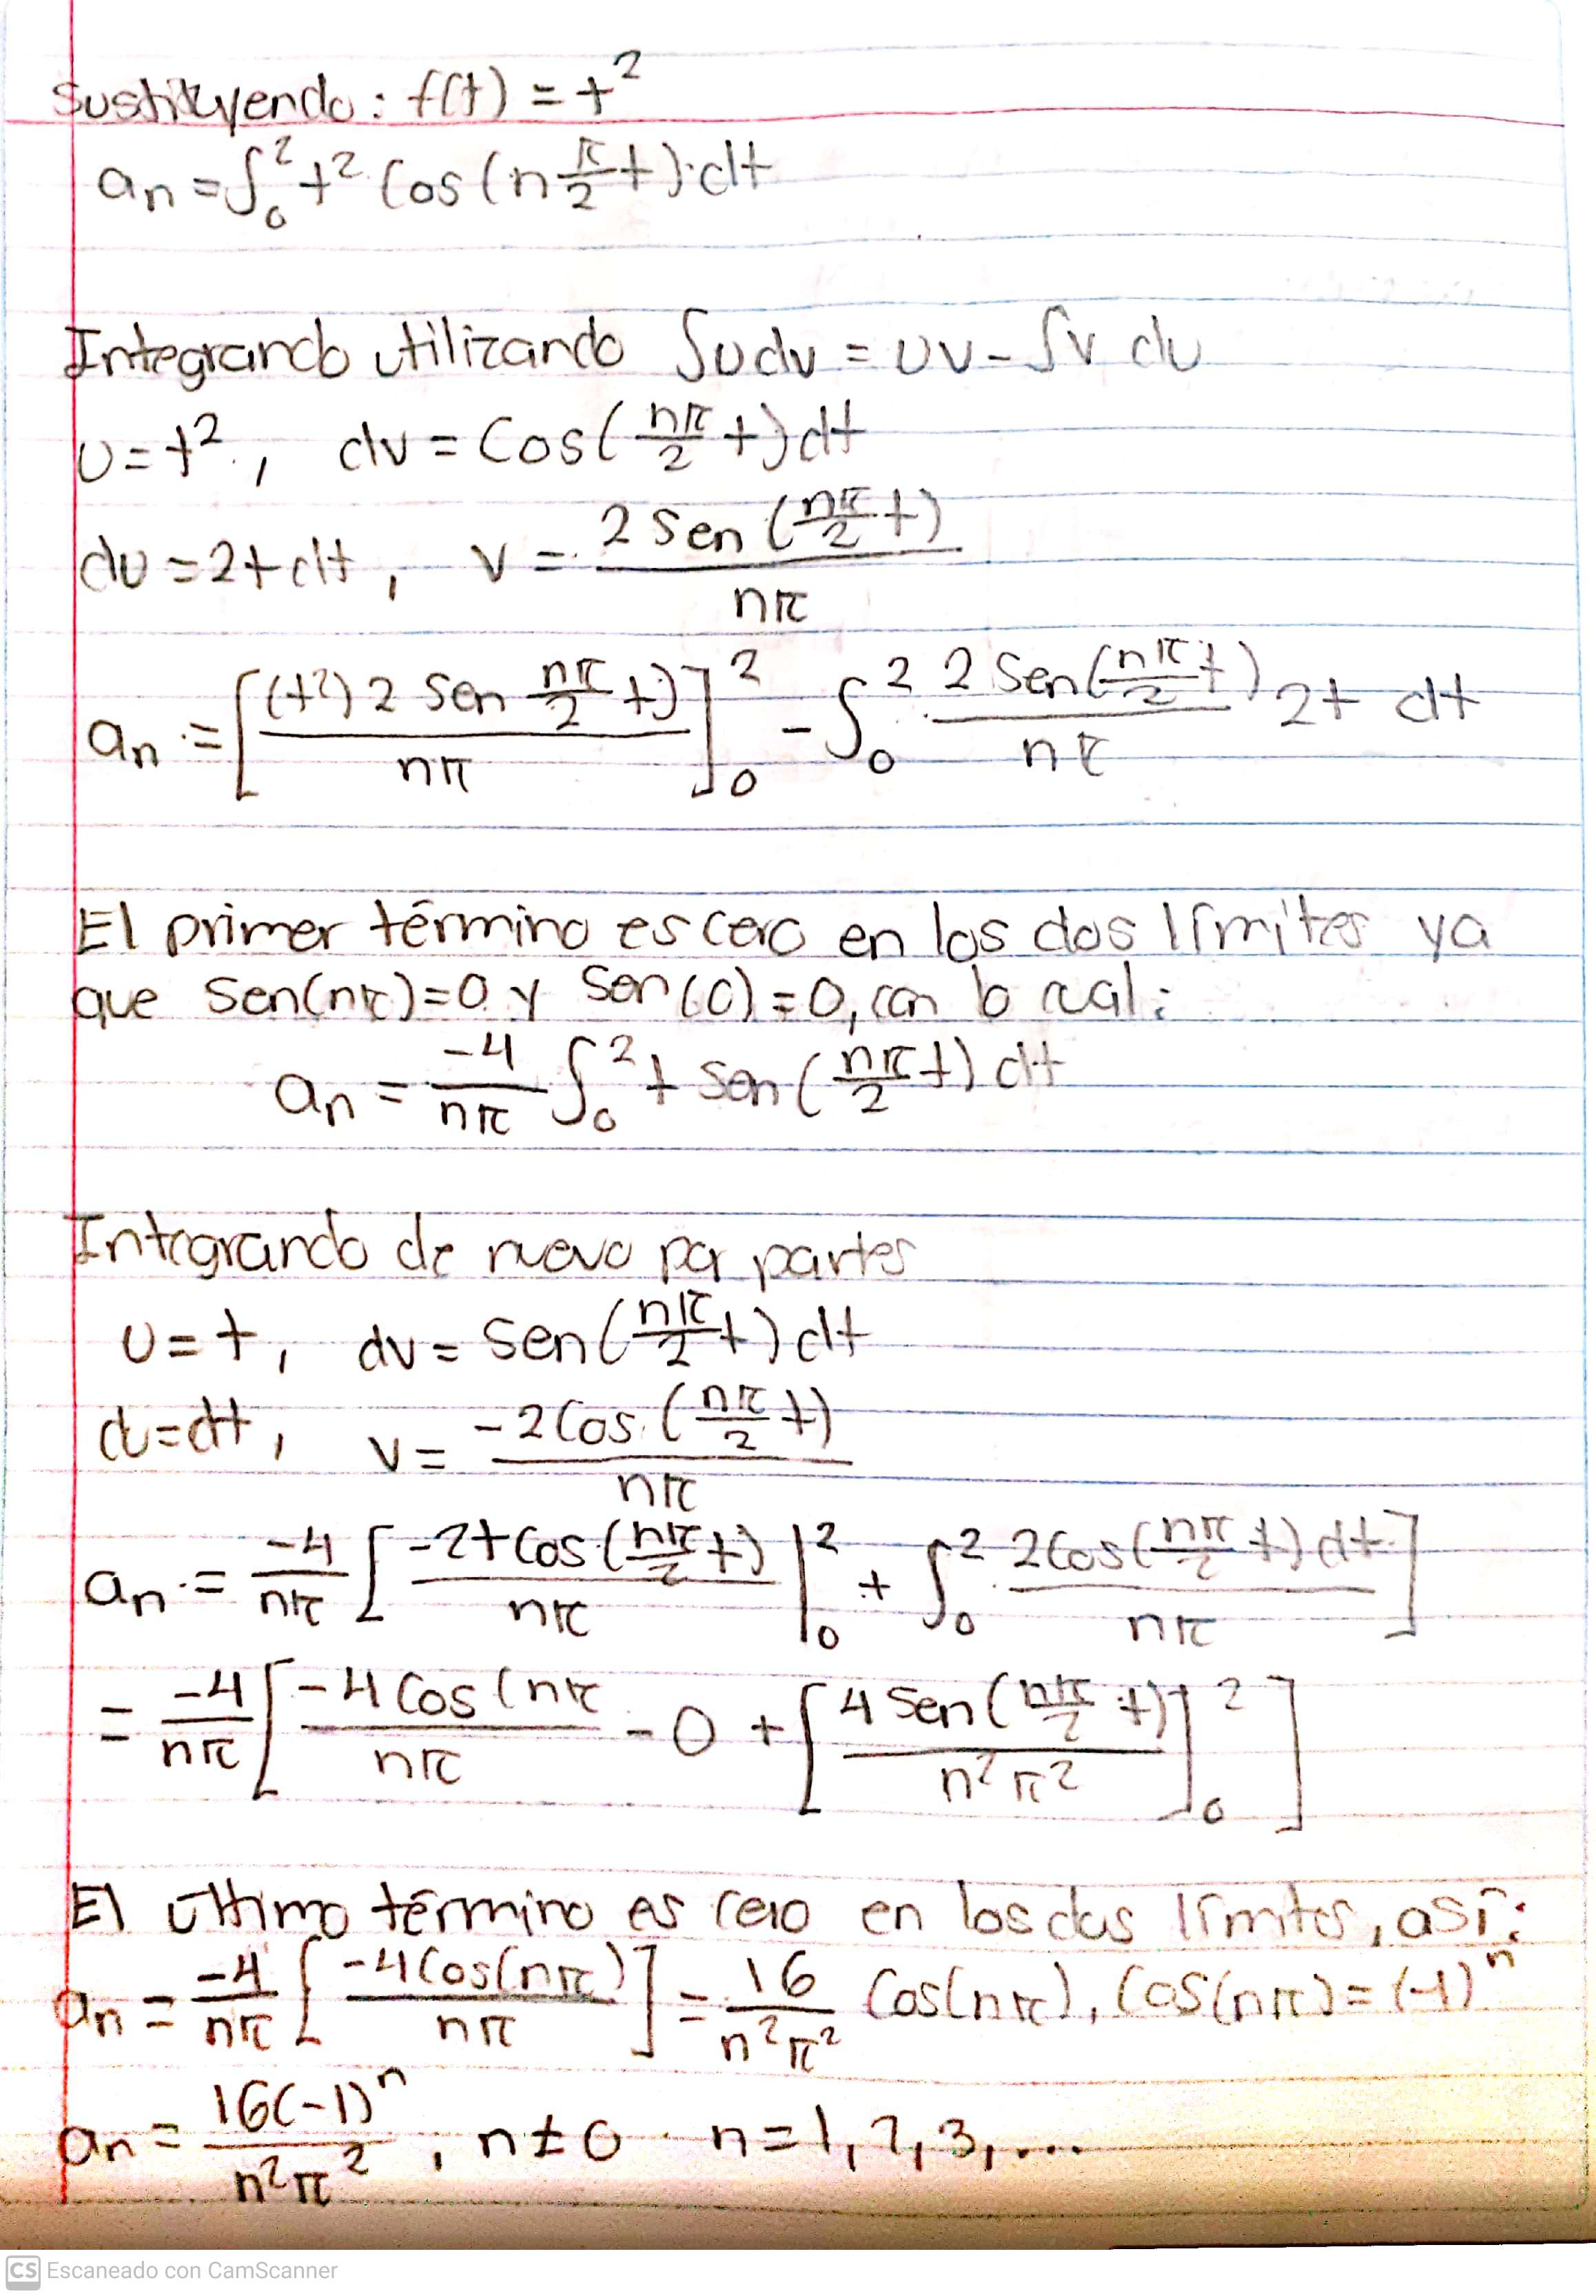 Sustituyendo: f(t) = t²
aₙ = ∫₀² t² Cos(n π/2 t)·dt
Integrando utilizando ∫u dv = uv - ∫v du
u = t², dv = Cos(nπ/2 t) dt
du = 2t dt, v = 2 Sen(nπ/2 t) / nπ
aₙ = [(t²) 2 Sen nπ/2 t) / nπ]₀² - ∫₀² 2 Sen(nπ/2 t) / nπ 2t dt
El primer término es cero en los dos límites ya
que Sen(nπ)=0 y Sen(0)=0, con lo cual:
aₙ = -4/nπ ∫₀² t Sen(nπ/2 t) dt
Integrando de nuevo por partes
u = t, dv = Sen(nπ/2 t) dt
du = dt, v = -2 Cos(nπ/2 t) / nπ
aₙ = -4/nπ [-2t Cos(nπ/2 t) / nπ |₀² + ∫₀² 2 Cos(nπ/2 t) dt / nπ]
= -4/nπ [-4 Cos(nπ / nπ - 0 + [4 Sen(nπ/2 t) / n²π²]₀²]
El último término es cero en los dos límites, así:
aₙ = -4/nπ [-4 Cos(nπ) / nπ] = 16/n²π² Cos(nπ), Cos(nπ) = (-1)ⁿ
aₙ = 16(-1)ⁿ / n²π², n ≠ 0 n = 1, 2, 3, ...
CS Escaneado con CamScanner